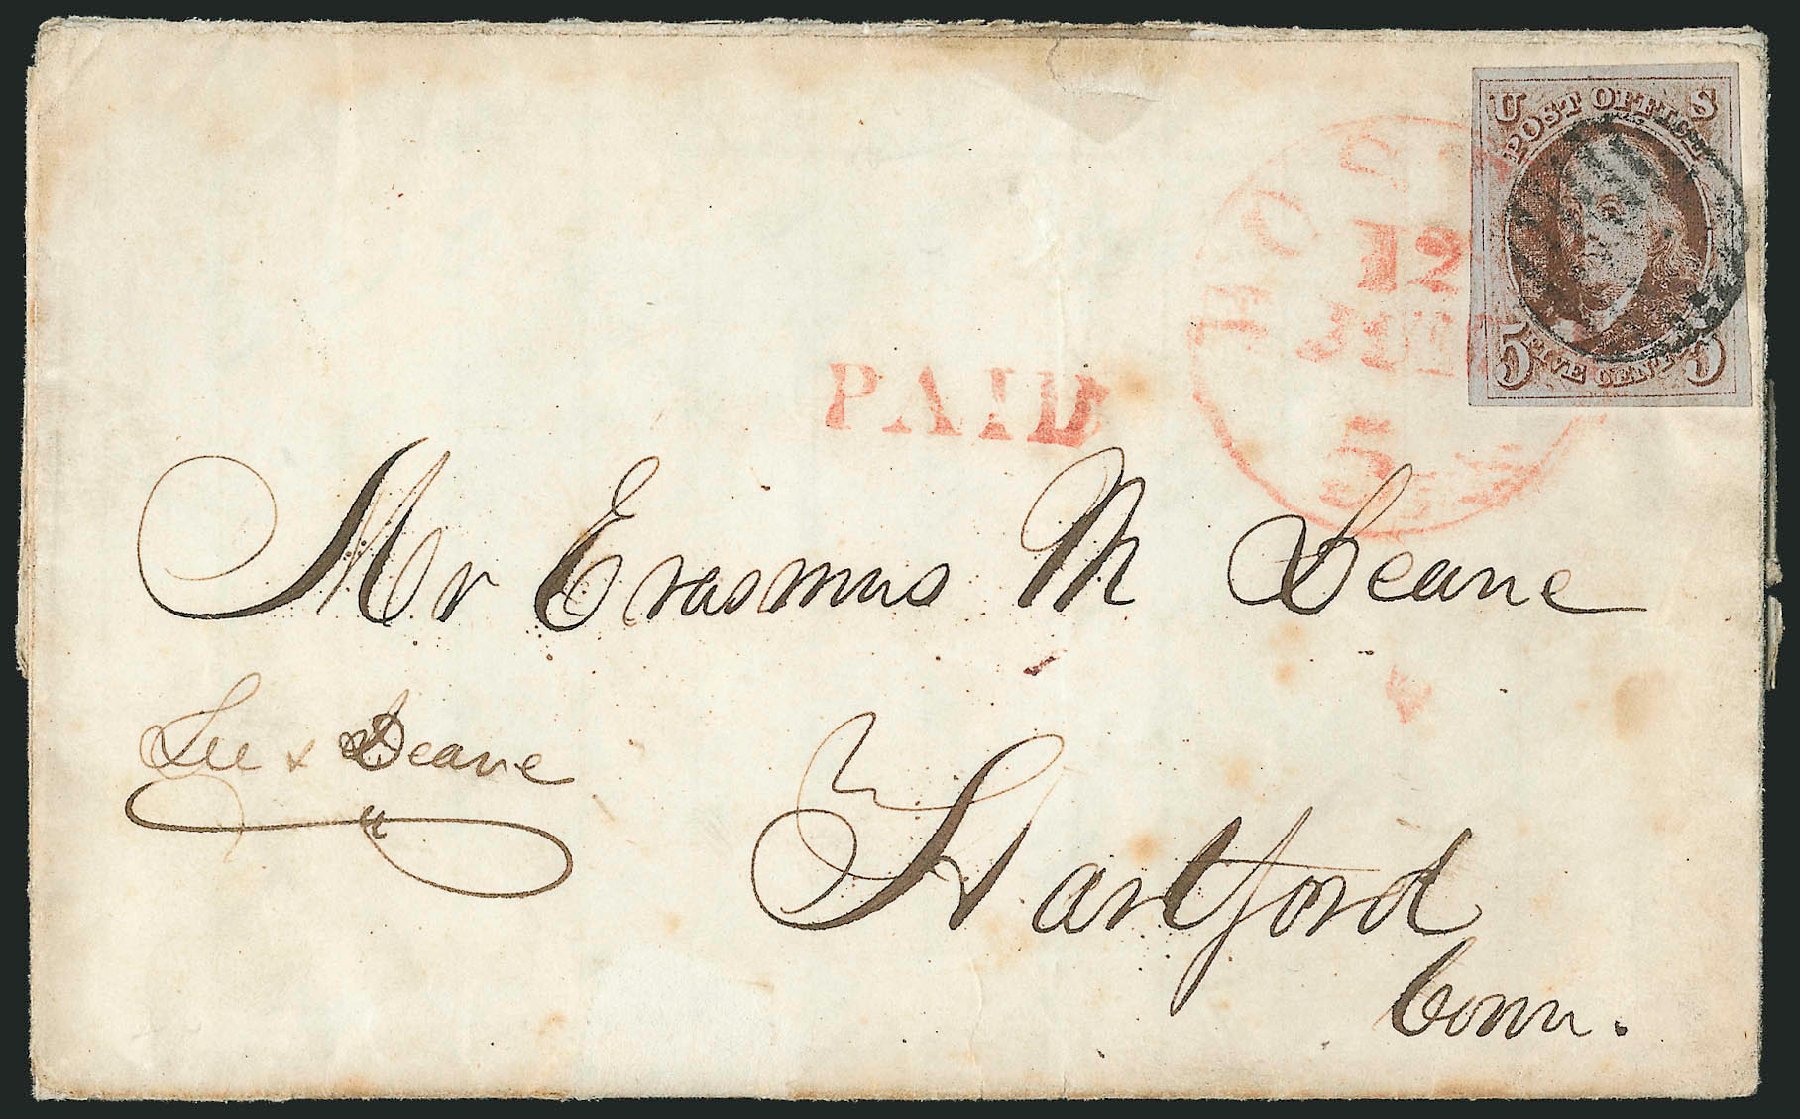 U S
POST OFFICE
5 FIVE CENTS 5
12
5
PAID
Mr Erasmus M Deane
Lee & Deane
Hartford
Conn.